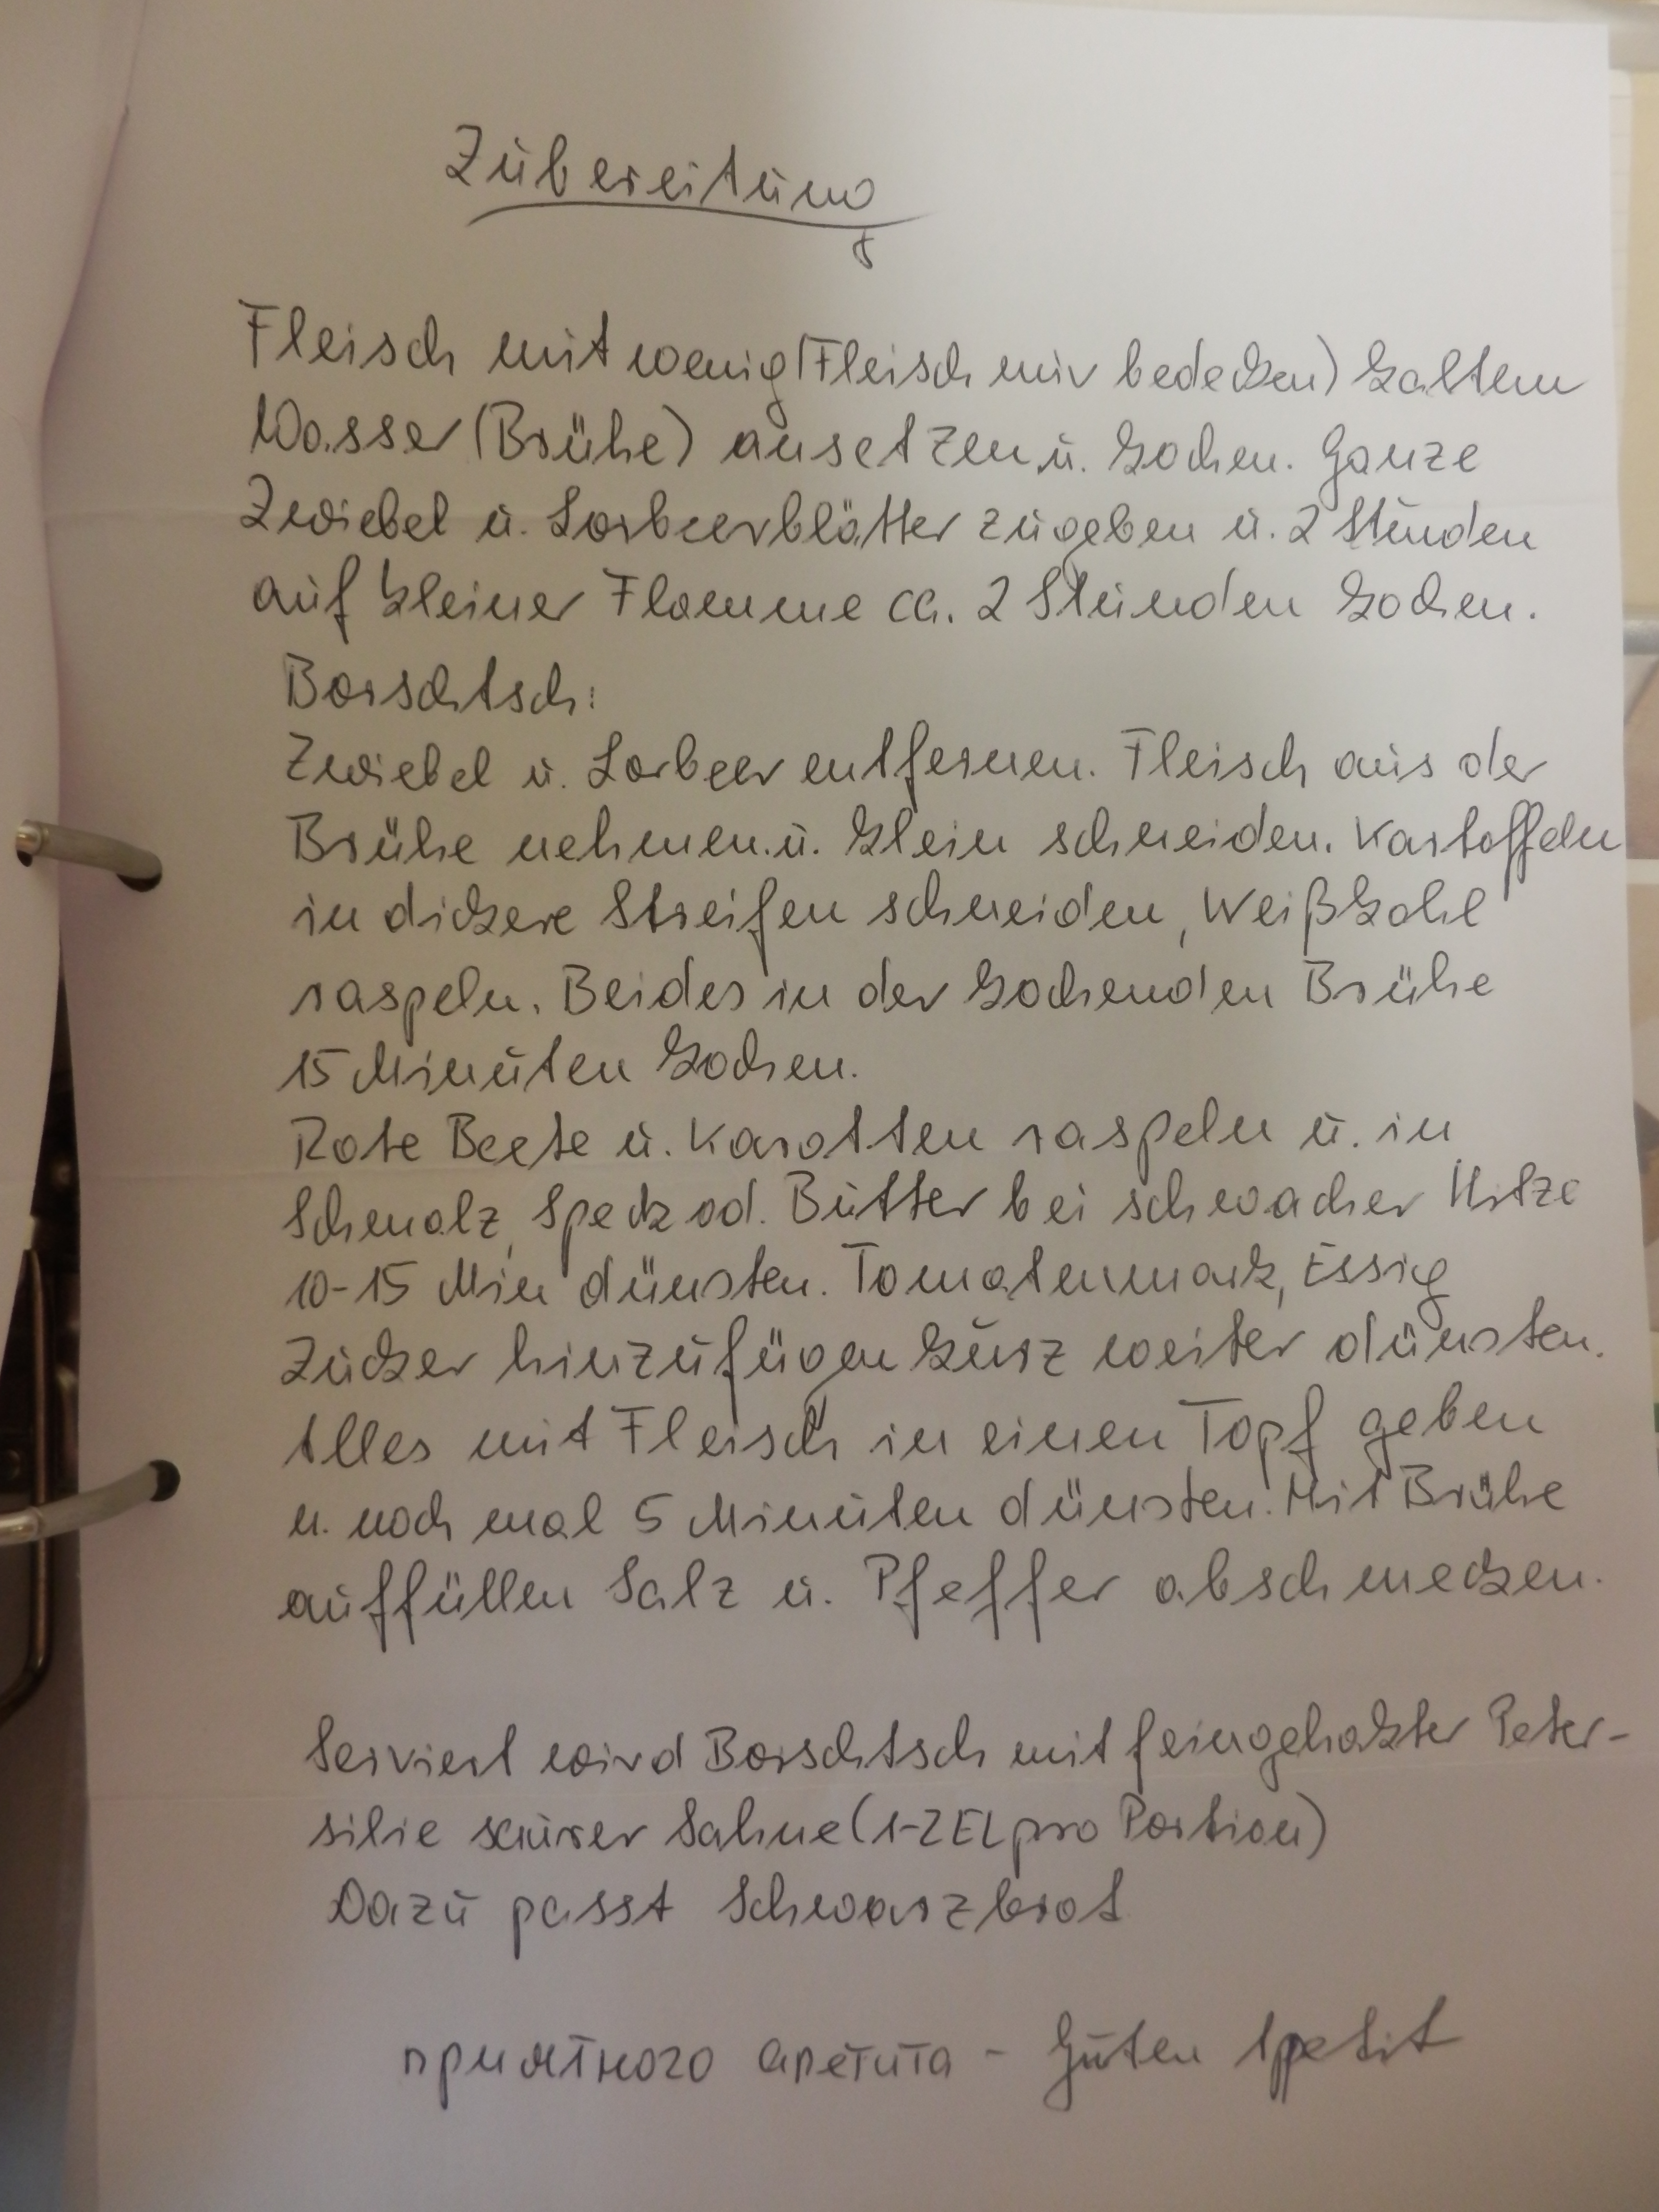 Zubereitung
Fleisch mit wenig (Fleisch nur bedecken) kaltem
Wasser (Brühe) ansetzen u. kochen. Ganze
Zwiebel u. Lorbeerblätter zugeben u. 2 Stunden
auf kleiner Flamme ca. 2 Stunden kochen.
Borschtsch:
Zwiebel u. Lorbeer entfernen. Fleisch aus der
Brühe nehmen u. klein schneiden. Kartoffeln
in dickere Streifen schneiden, Weißkohl
raspeln. Beides in der kochenden Brühe
15 Minuten kochen.
Rote Beete u. Karotten raspeln u. in
Schmalz, Speck od. Butter bei schwacher Hitze
10-15 Min dünsten. Tomatenmark, Essig
Zucker hinzufügen kurz weiter dünsten.
Alles mit Fleisch in einen Topf geben
u. noch mal 5 Minuten dünsten. Mit Brühe
auffüllen Salz u. Pfeffer abschmecken.
Serviert wird Borschtsch mit feingehakter Peter-
silie saurer Sahne (1-2 EL pro Portion)
Dazu passt Schwarzbrot
приятного апетита - Guten Appetit